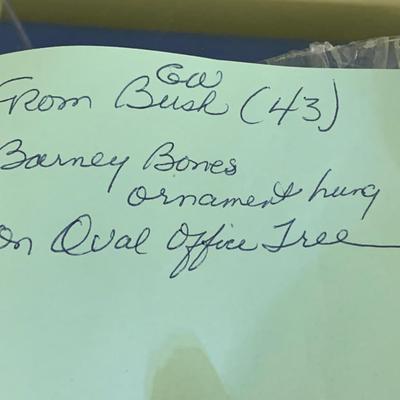 From GW Bush (43)
Barney Bones
ornament hung
on Oval Office Tree